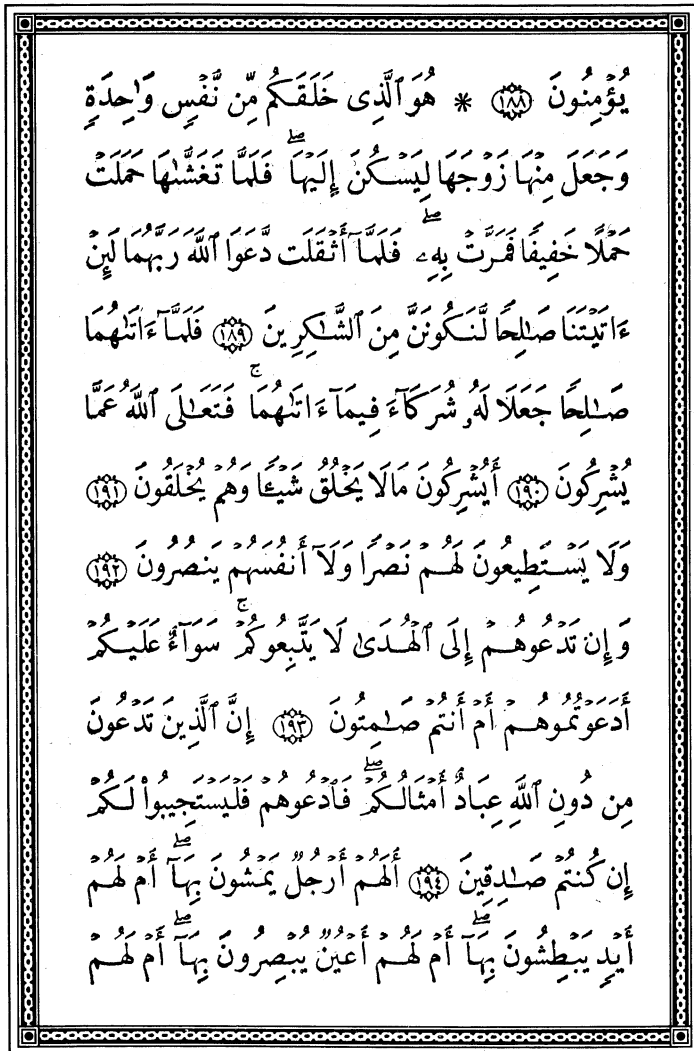 يُؤْمِنُونَ ١٨٨ * هُوَ ٱلَّذِى خَلَقَكُم مِّن نَّفْسٍ وَٰحِدَةٍ
وَجَعَلَ مِنْهَا زَوْجَهَا لِيَسْكُنَ إِلَيْهَا ۖ فَلَمَّا تَغَشَّىٰهَا حَمَلَتْ
حَمْلًا خَفِيفًا فَمَرَّتْ بِهِۦ ۖ فَلَمَّآ أَثْقَلَت دَّعَوَا ٱللَّهَ رَبَّهُمَا لَئِنْ
ءَاتَيْتَنَا صَـٰلِحًا لَّنَكُونَنَّ مِنَ ٱلشَّـٰكِرِينَ ١٨٩ فَلَمَّآ ءَاتَىٰهُمَا
صَـٰلِحًا جَعَلَا لَهُۥ شُرَكَآءَ فِيمَآ ءَاتَىٰهُمَا ۚ فَتَعَـٰلَى ٱللَّهُ عَمَّا
يُشْرِكُونَ ١٩٠ أَيُشْرِكُونَ مَا لَا يَخْلُقُ شَيْـًٔا وَهُمْ يُخْلَقُونَ ١٩١
وَلَا يَسْتَطِيعُونَ لَهُمْ نَصْرًا وَلَآ أَنفُسَهُمْ يَنصُرُونَ ١٩٢
وَإِن تَدْعُوهُمْ إِلَى ٱلْهُدَىٰ لَا يَتَّبِعُوكُمْ ۚ سَوَآءٌ عَلَيْكُمْ
أَدَعَوْتُمُوهُمْ أَمْ أَنتُمْ صَـٰمِتُونَ ١٩٣ إِنَّ ٱلَّذِينَ تَدْعُونَ
مِن دُونِ ٱللَّهِ عِبَادٌ أَمْثَالُكُمْ ۖ فَٱدْعُوهُمْ فَلْيَسْتَجِيبُوا۟ لَكُمْ
إِن كُنتُمْ صَـٰدِقِينَ ١٩٤ أَلَهُمْ أَرْجُلٌ يَمْشُونَ بِهَآ ۖ أَمْ لَهُمْ
أَيْدٍ يَبْطِشُونَ بِهَآ ۖ أَمْ لَهُمْ أَعْيُنٌ يُبْصِرُونَ بِهَآ ۖ أَمْ لَهُمْ